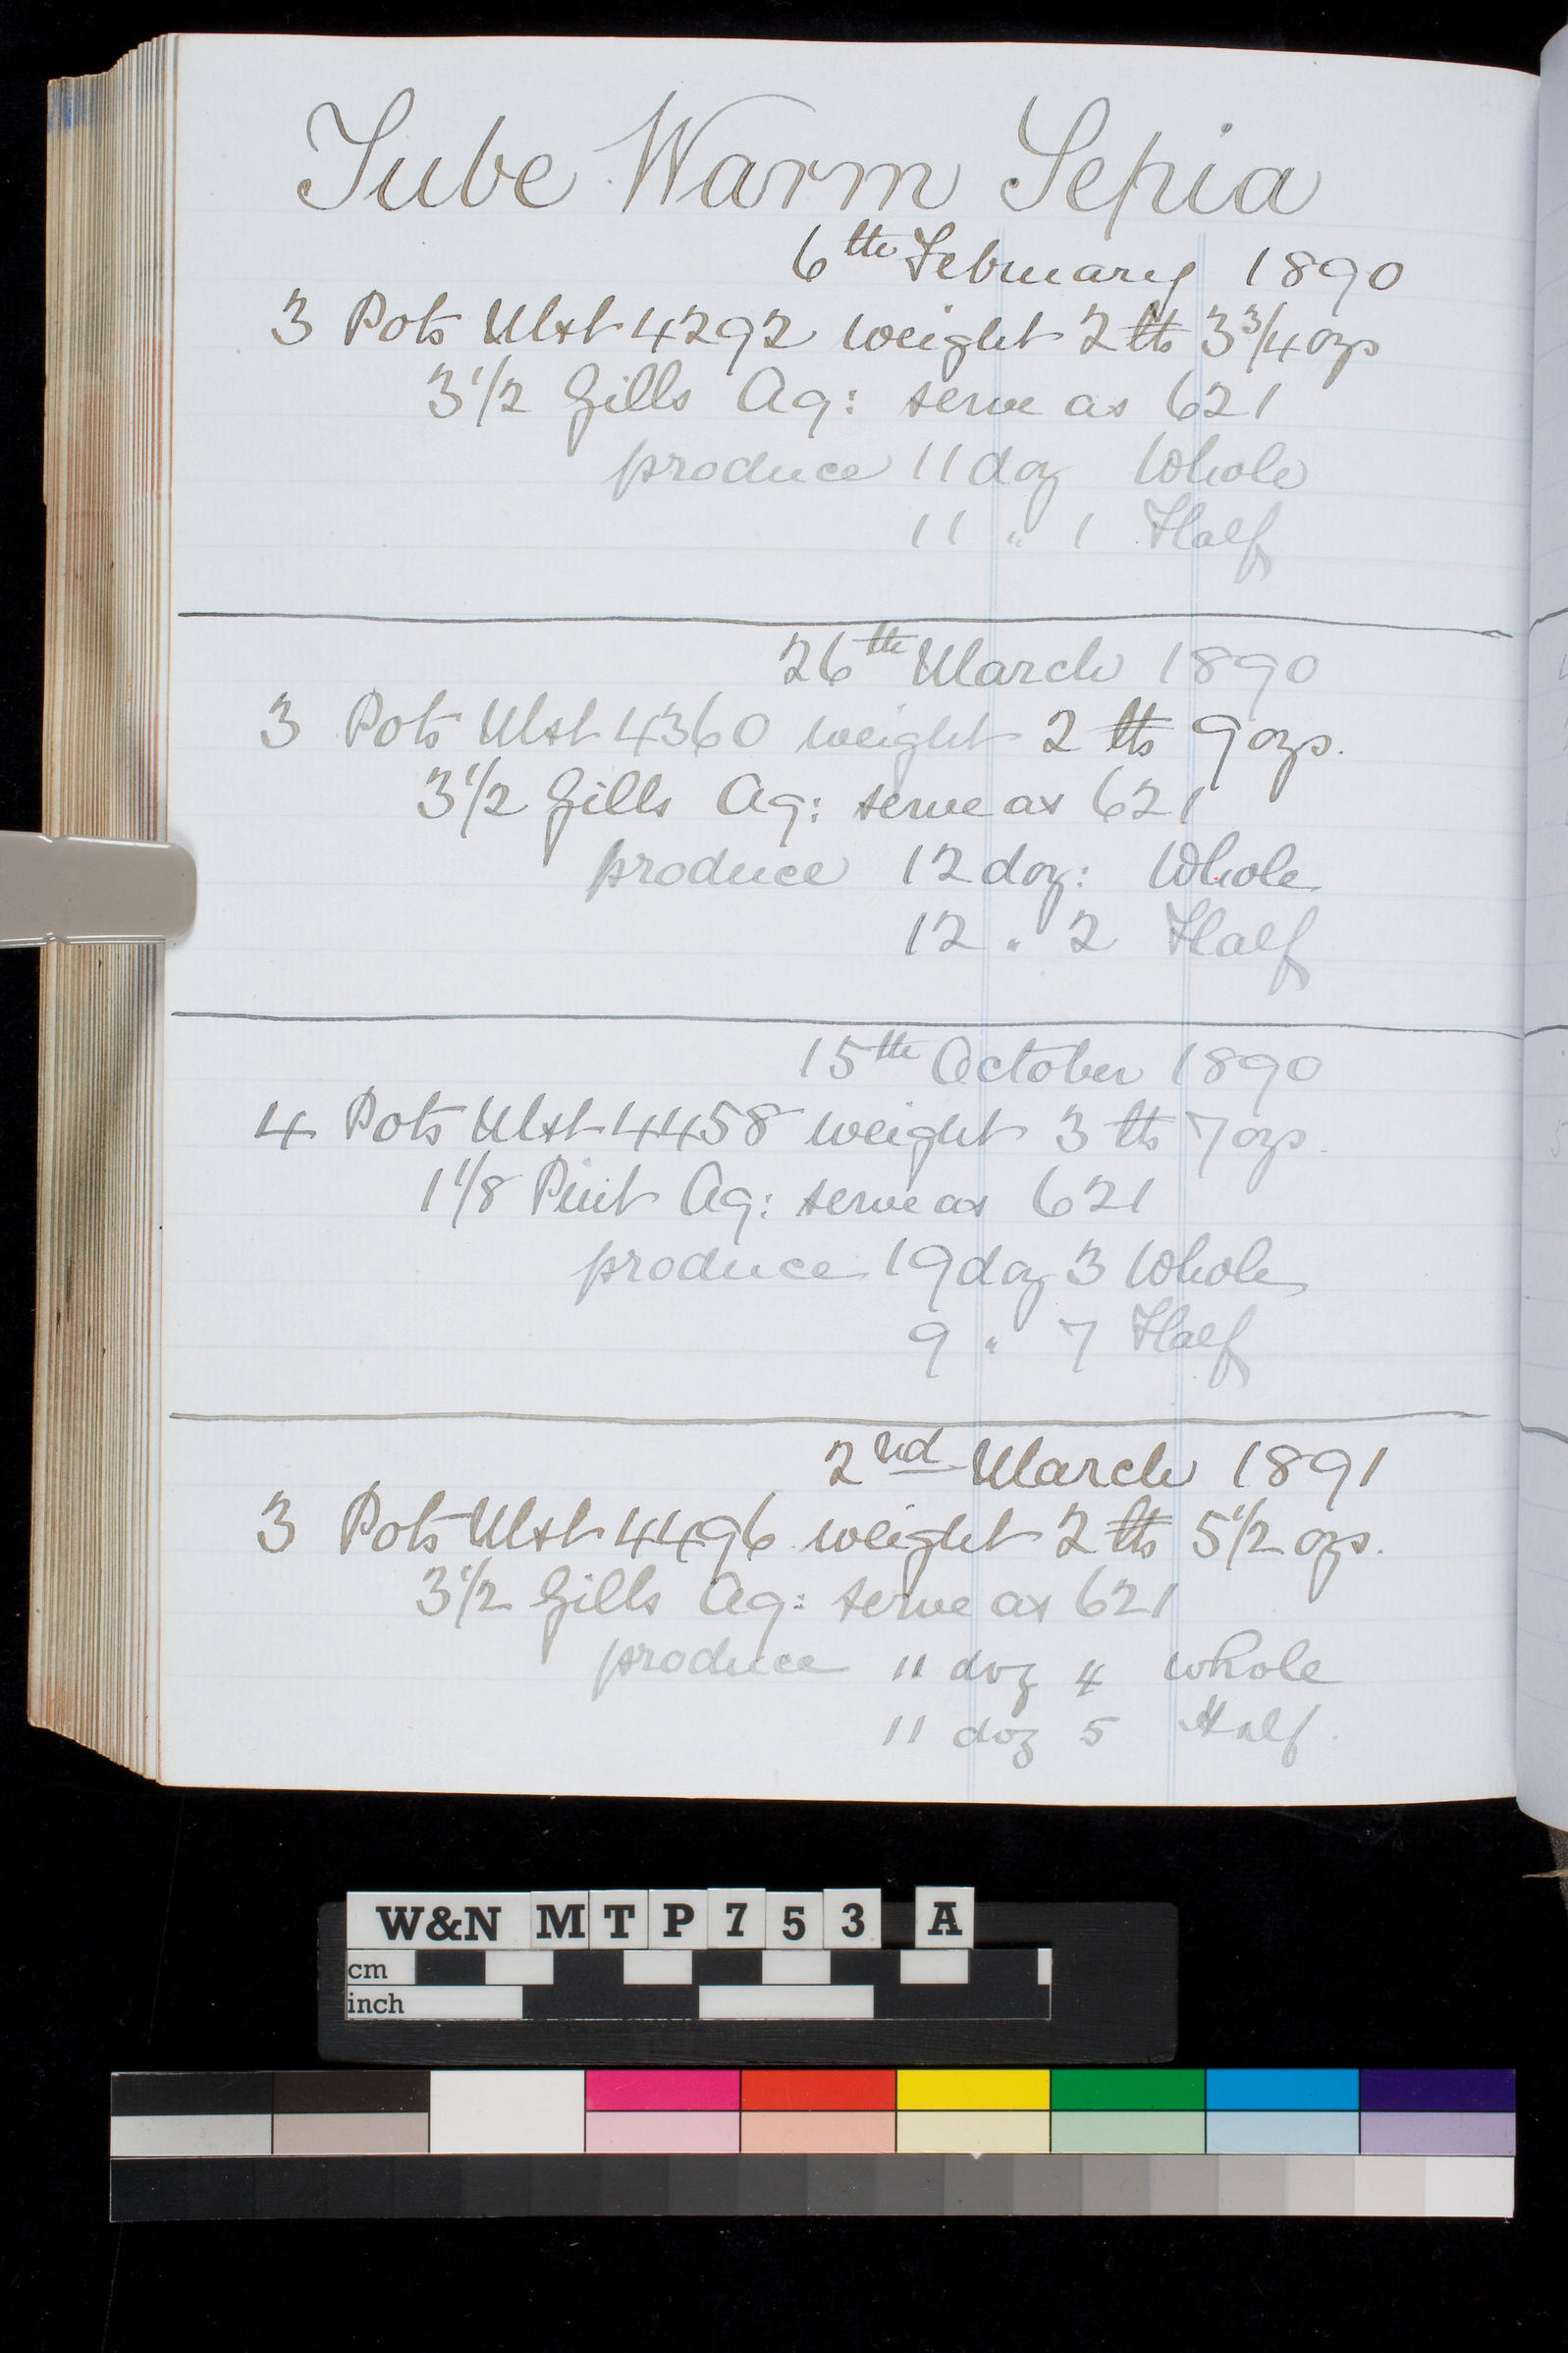 Tube Warm Sepia
6th February 1890
3 Pots Mxt 4292 weight 2 lbs 3 3/4 ozs
3 1/2 Gills Aq: serve as 621
produce 11 doz Whole
11 " 1 Half
26th March 1890
3 Pots Mxt 4360 weight 2 lbs 9 ozs.
3 1/2 Gills Aq: serve as 621
produce 12 doz: Whole
12 " 2 Half
15th October 1890
4 Pots Mxt 4458 weight 3 lbs 7 ozs.
1 1/8 Pint Aq: serve as 621
produce 19 doz 3 Whole
9 " 7 Half
2nd March 1891
3 Pots Mxt 4496 weight 2 lbs 5 1/2 ozs.
3 1/2 Gills Aq: serve as 621
produce 11 doz 4 whole
11 doz 5 Half.
W&N MTP753 A
cm
inch